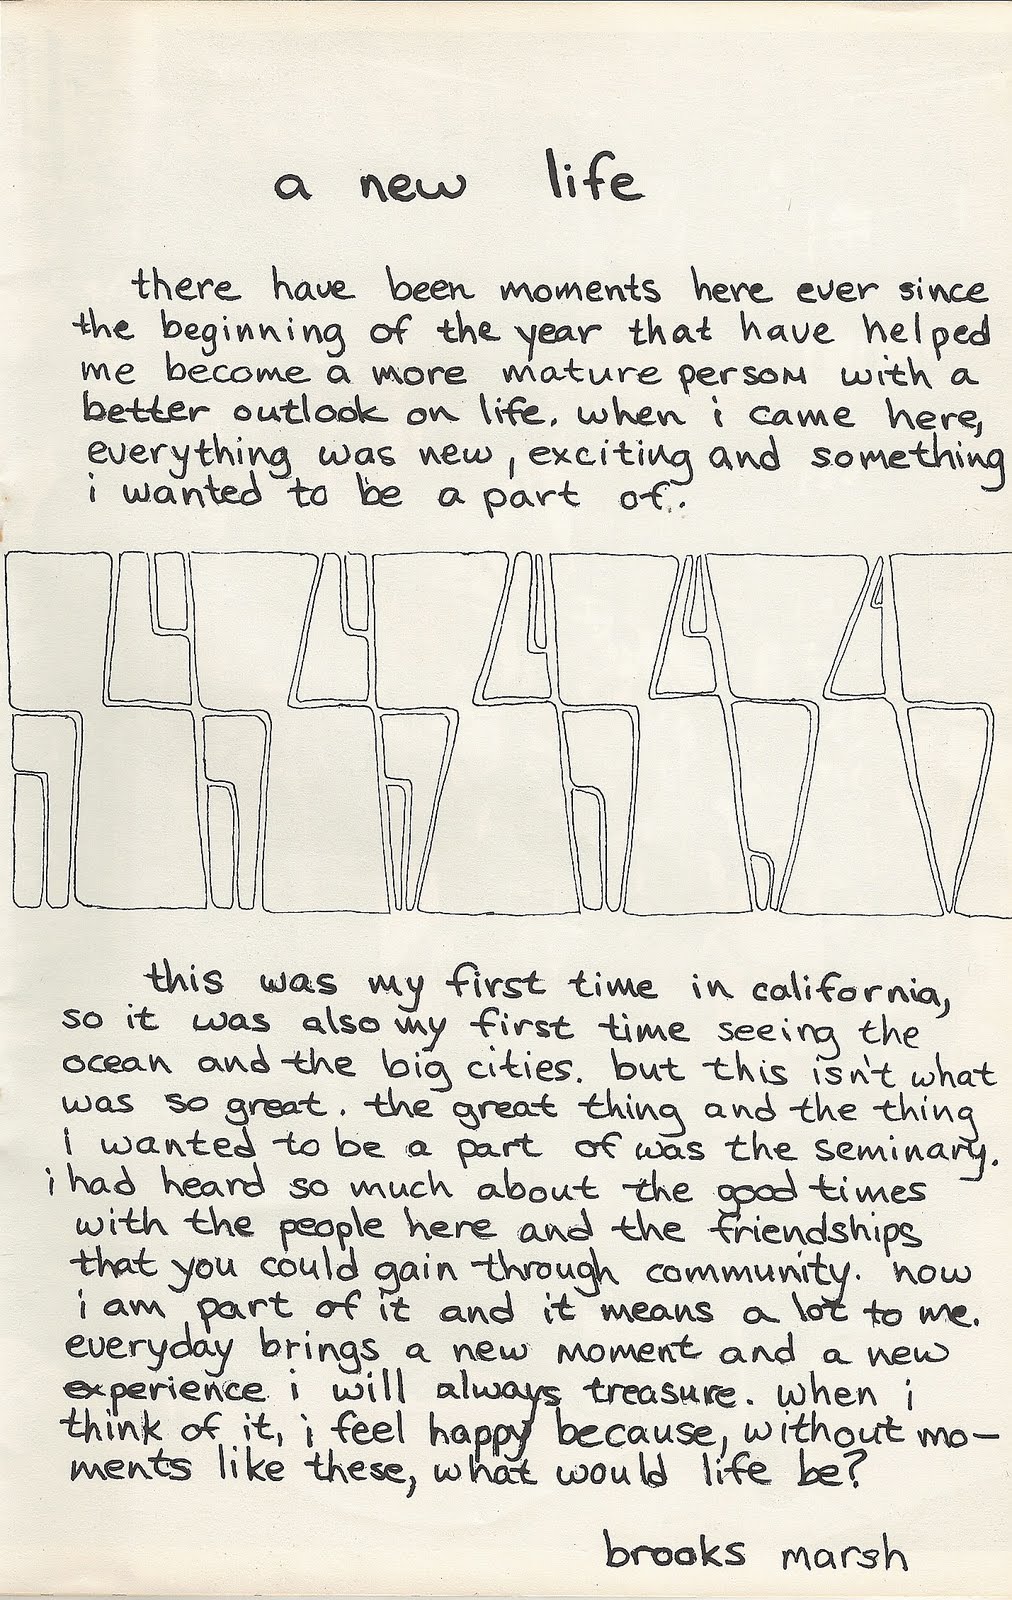 a new life
there have been moments here ever since
the beginning of the year that have helped
me become a more mature person with a
better outlook on life. when i came here,
everything was new, exciting and something
i wanted to be a part of.
this was my first time in california,
so it was also my first time seeing the
ocean and the big cities. but this isn't what
was so great. the great thing and the thing
i wanted to be a part of was the seminary.
i had heard so much about the good times
with the people here and the friendships
that you could gain through community. now
i am part of it and it means a lot to me.
everyday brings a new moment and a new
experience i will always treasure. when i
think of it, i feel happy because, without mo-
ments like these, what would life be?
brooks marsh